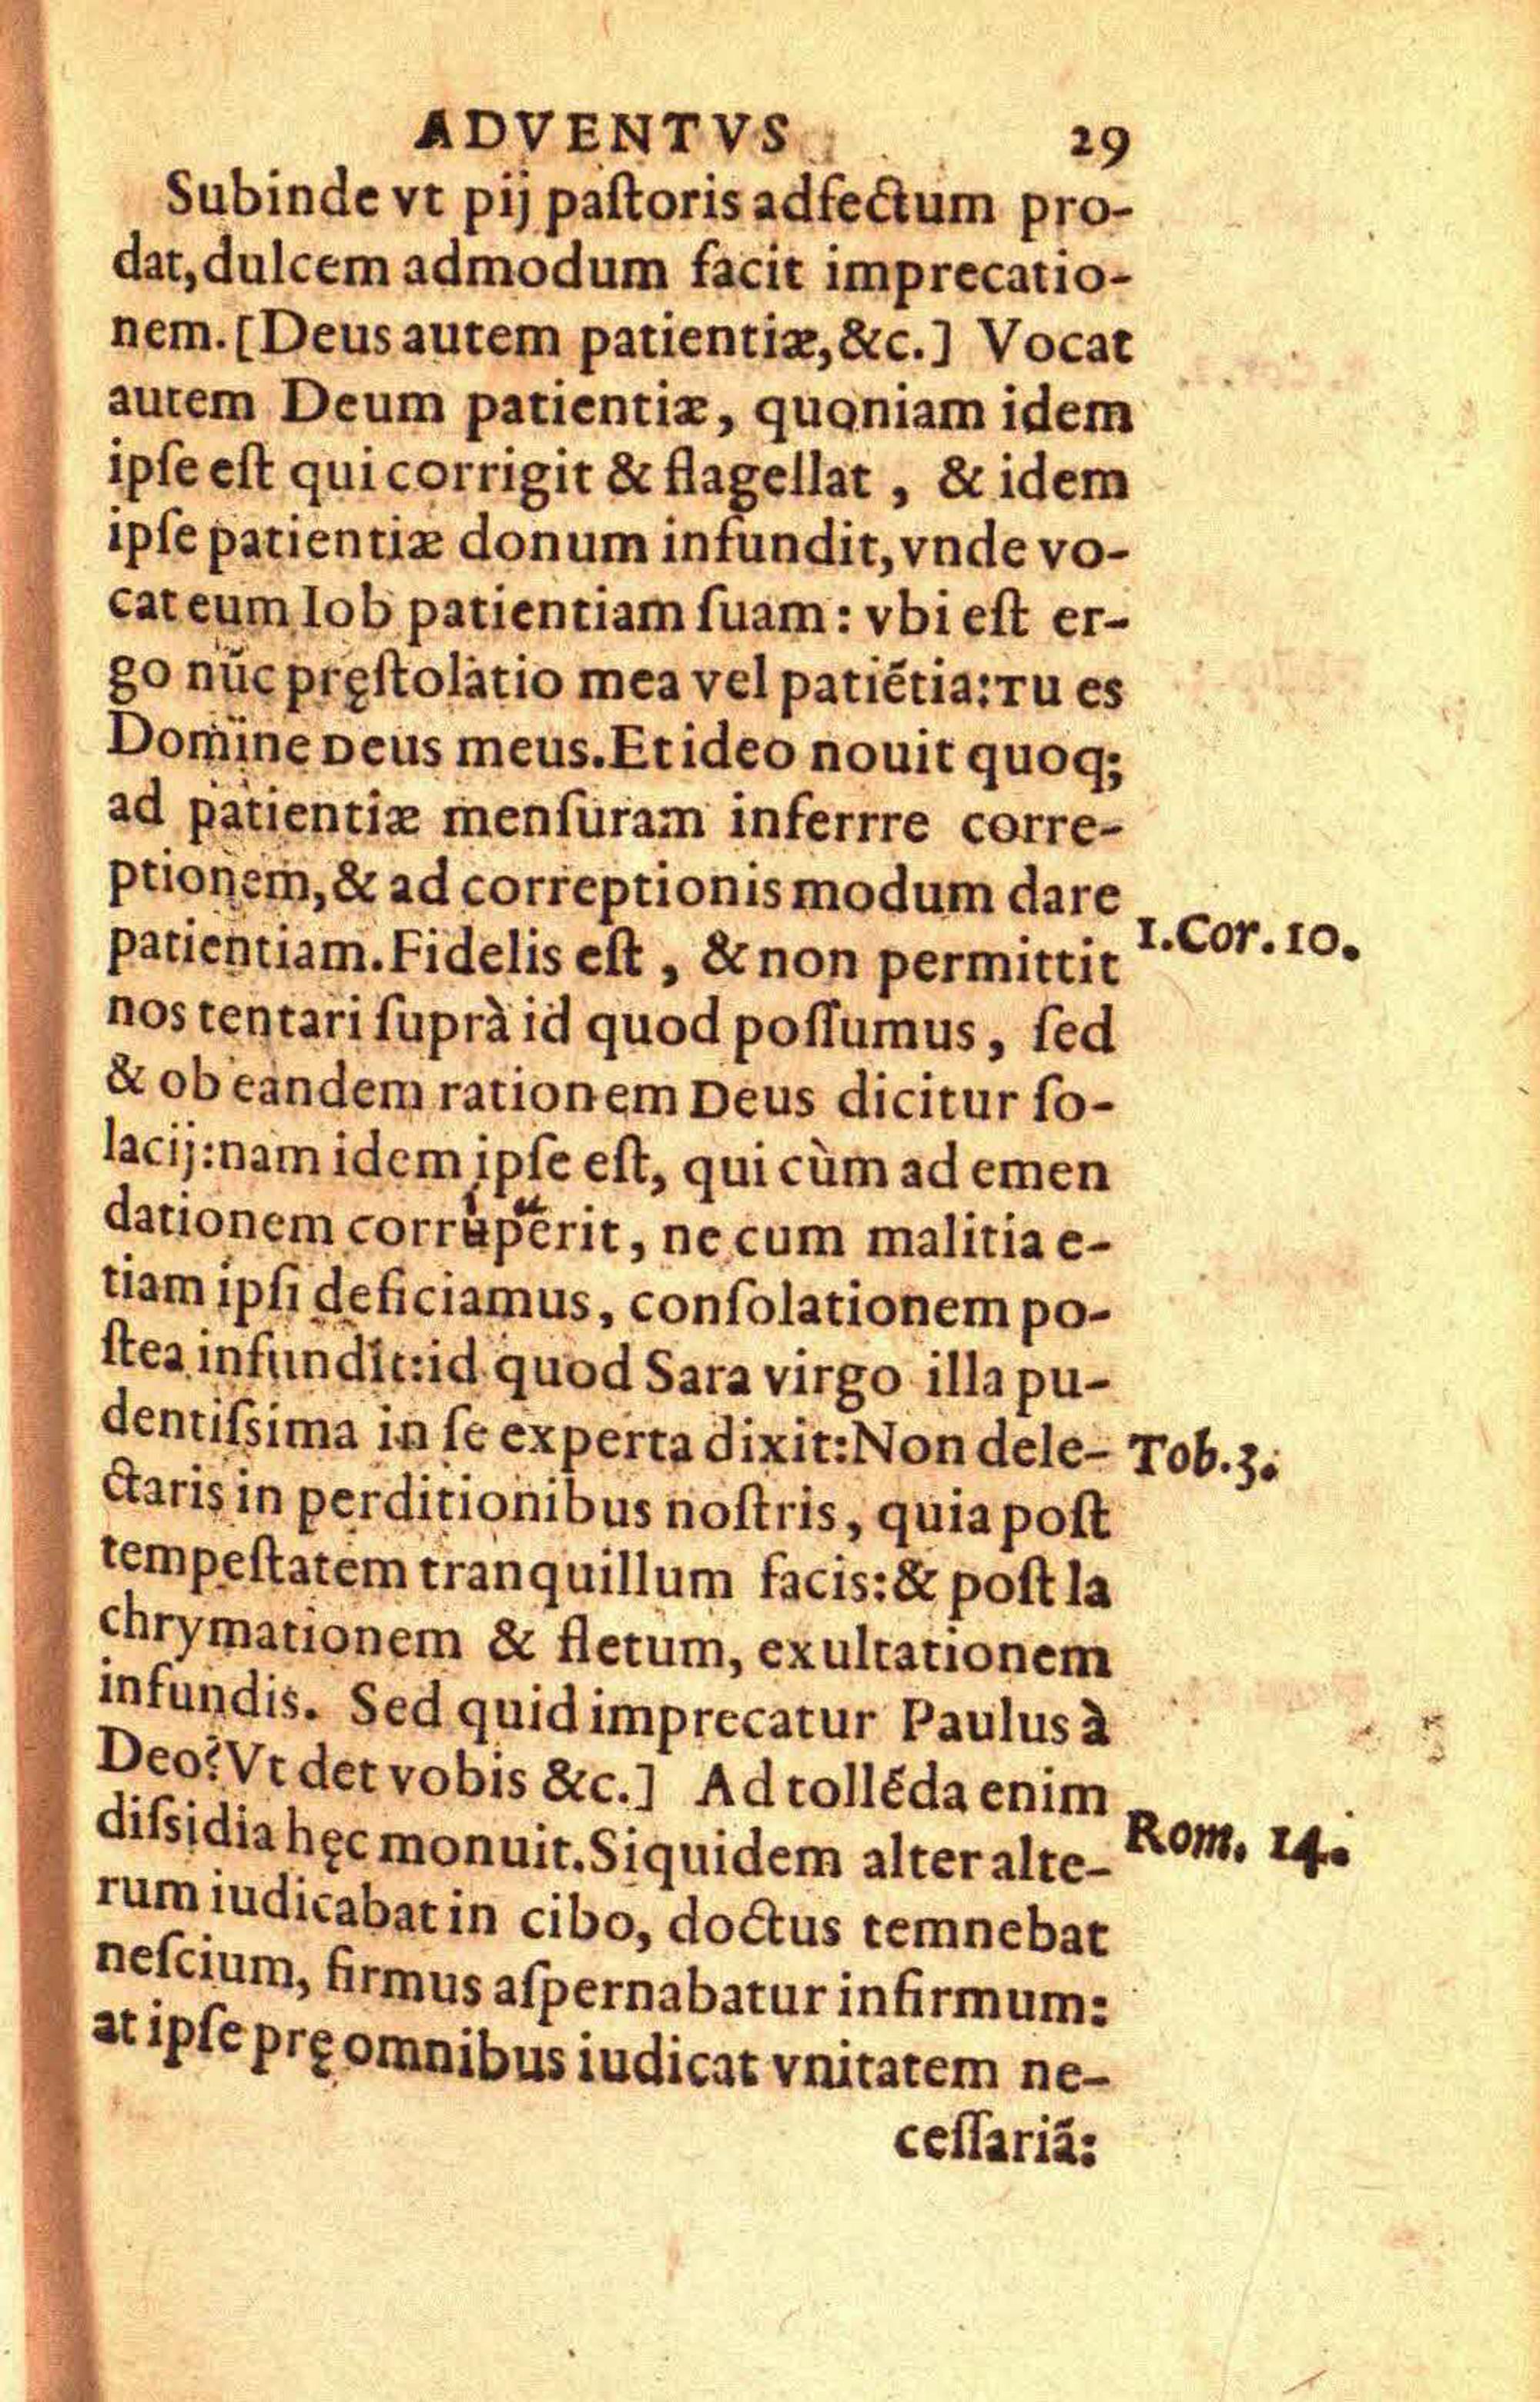 ADVENTVS 29
Subinde vt pij paſtoris adfectum pro-
dat, dulcem admodum facit imprecatio-
nem. [Deus autem patientiæ, &c.] Vocat
autem Deum patientiæ, quoniam idem
ipſe eſt qui corrigit & flagellat , & idem
ipſe patientiæ donum infundit, vnde vo-
cat eum Iob patientiam ſuam: vbi eſt er-
go nūc pręſtolatio mea vel patiētia: Tu es
Domine Deus meus. Et ideo nouit quoq;
ad patientiæ menſuram inferrre corre-
ptionem, & ad correptionis modum dare
patientiam. Fidelis eſt , & non permittit
1. Cor. 10.
nos tentari ſuprà id quod poſſumus, ſed
& ob eandem rationem Deus dicitur ſo-
lacij: nam idem ipſe eſt, qui cùm ad emen
dationem corruperit, ne cum malitia e-
tiam ipſi deficiamus, conſolationem po-
ſtea infundit: id quod Sara virgo illa pu-
dentiſsima in ſe experta dixit: Non dele-
Tob. 3.
ctaris in perditionibus noſtris, quia poſt
tempeſtatem tranquillum facis: & poſt la
chrymationem & fletum, exultationem
infundis. Sed quid imprecatur Paulus à
Deo? Vt det vobis &c.] Ad tollēda enim
diſsidia hęc monuit. Siquidem alter alte-
Rom. 14.
rum iudicabat in cibo, doctus temnebat
neſcium, firmus aſpernabatur infirmum:
at ipſe prę omnibus iudicat vnitatem ne-
ceſſariã: